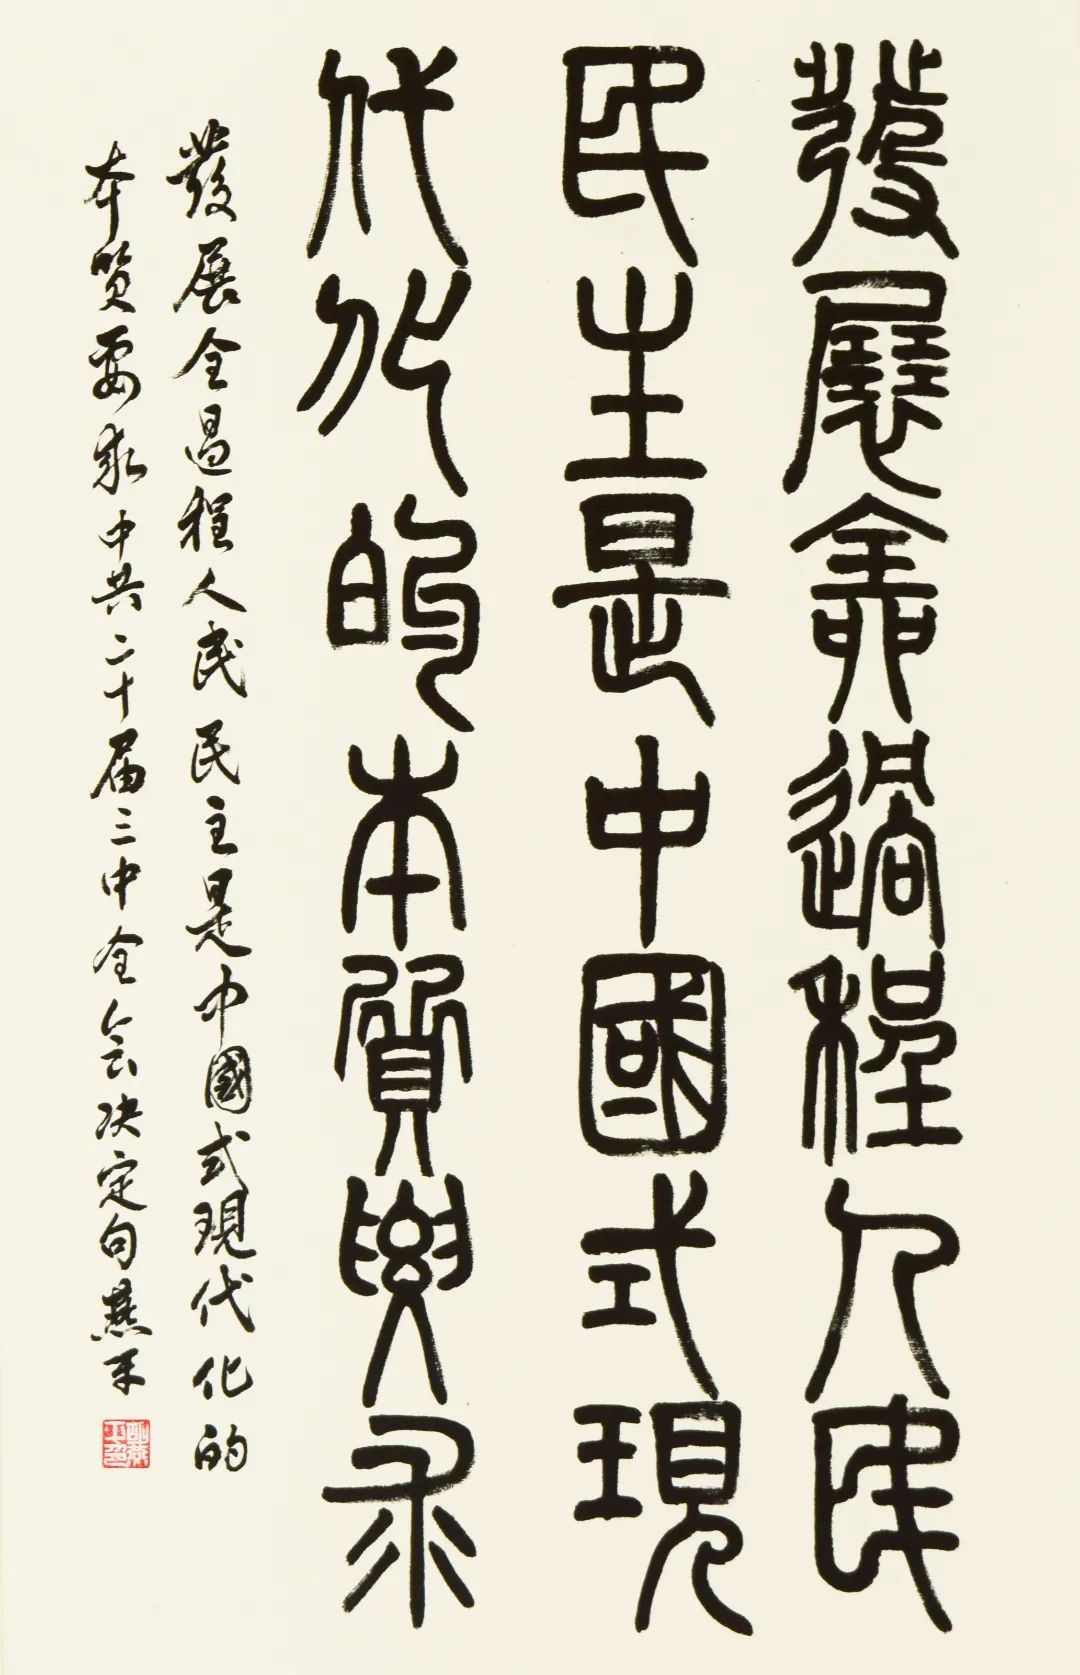 發展全過程人民
民主是中國式現
代化的本質要求
發展全過程人民民主是中國式現代化的
本質要求中共二十届三中全会决定句燕平